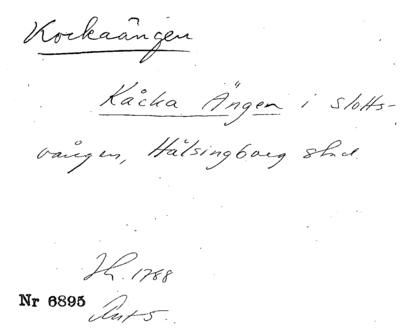 Kockaängen
Kåcka Ängen i slotts-
vången, Hälsingborg stad.
Jh. 1788
Nr 6895